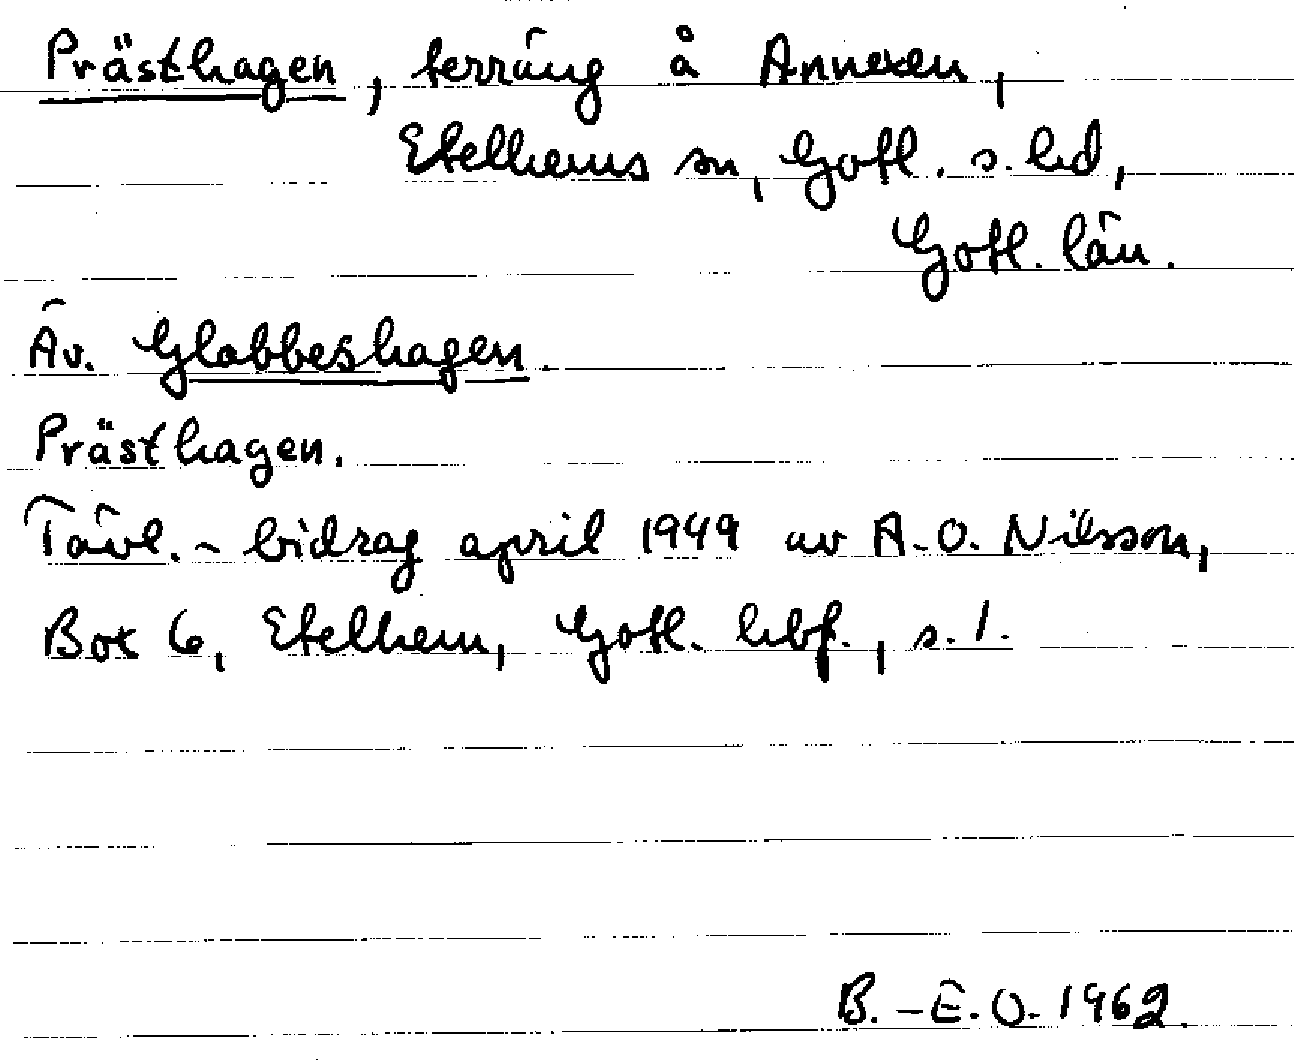 Prästhagen, terräng å Annexen,
Etelhems sn, Gotl. s. hd,
Gotl. län.
Äv. Glabbeshagen.
Prästhagen.
Tävl.-bidrag april 1949 av A.O. Nilsson,
Box 6, Etelhem, Gotl. hbf., s. 1.
B.-E.O. 1962.